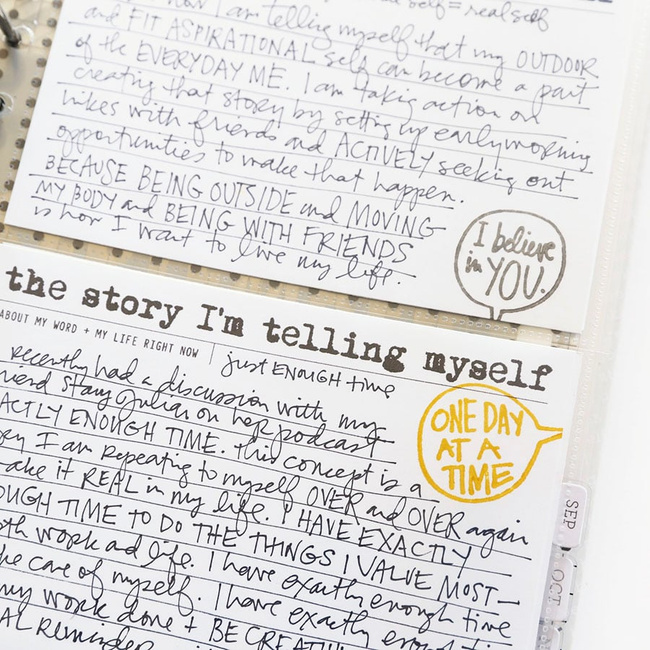 now I am telling myself that my OUTDOOR
and FIT ASPIRATIONAL self can become a part
of the EVERYDAY ME. I am taking action on
creating that story by setting up early morning
hikes with friends and ACTIVELY seeking out
opportunities to make that happen.
BECAUSE BEING OUTSIDE and MOVING
MY BODY and BEING WITH FRIENDS
is how I want to live my life.
I believe
in YOU.
the story I'm telling myself
ABOUT MY WORD + MY LIFE RIGHT NOW | just ENOUGH time
recently had a discussion with my
friend Stacy Julian on her podcast
EXACTLY ENOUGH TIME. This concept is a
I am repeating to myself OVER and OVER again
make it REAL in my life. I HAVE EXACTLY
ENOUGH TIME TO DO THE THINGS I VALUE MOST—
both work and life. I have exactly enough time
take care of myself. I have exactly enough time
my work done + BE CREATIVE
REAL Reminder
ONE DAY
AT A
TIME
SEP
OCT